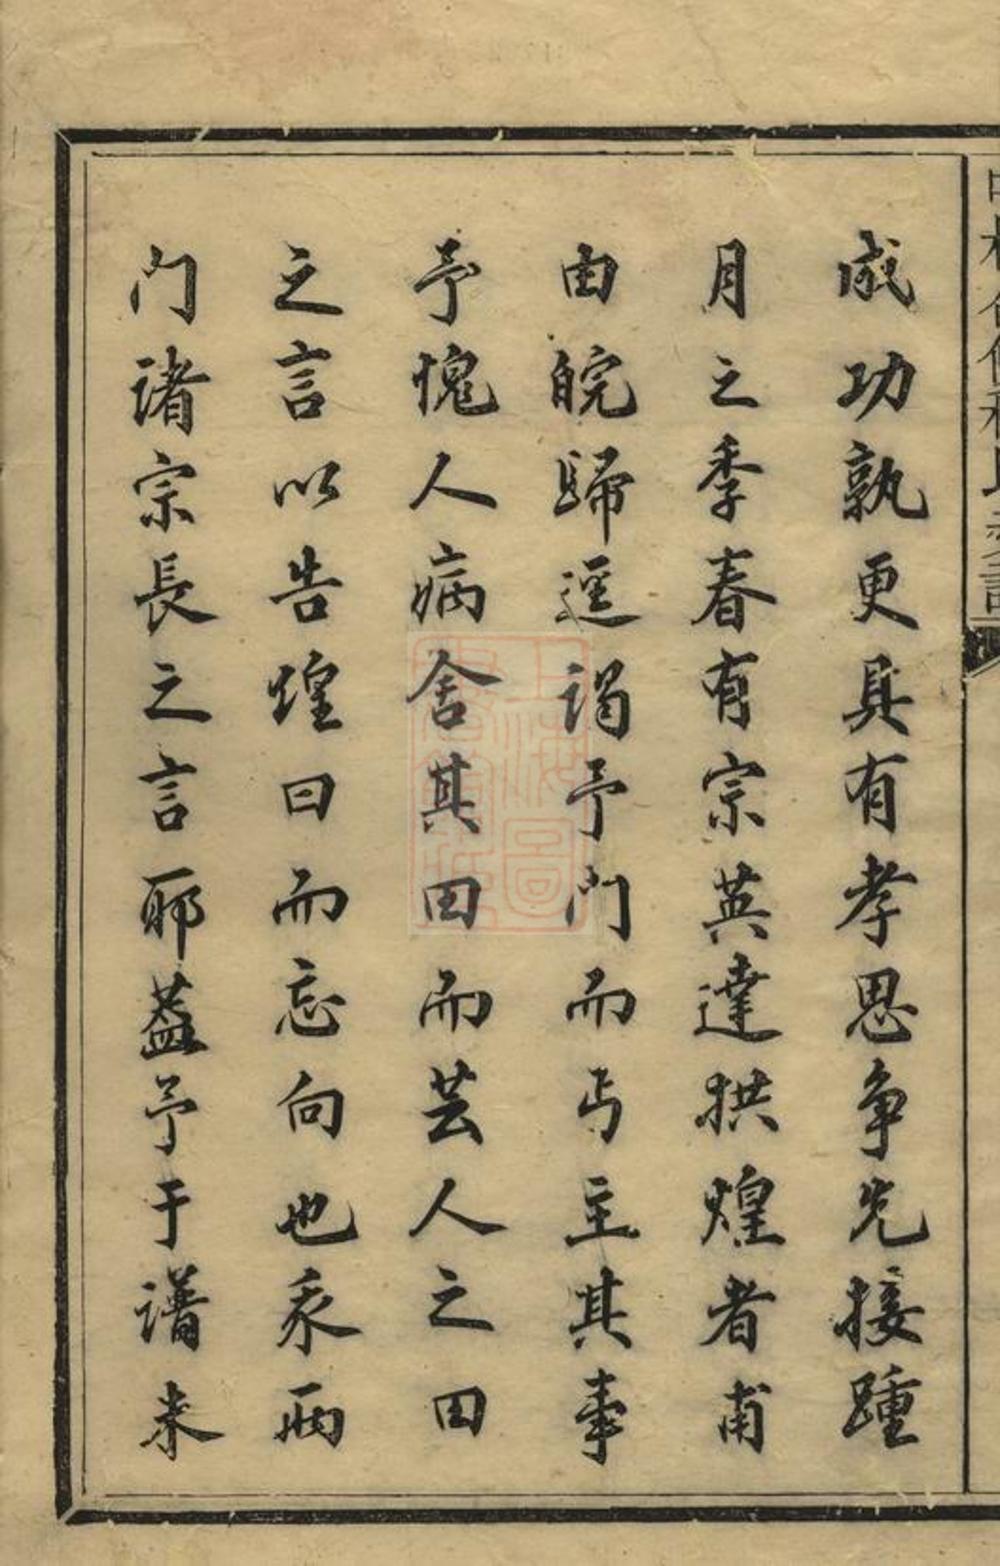 成功孰更具有孝思争先接踵
月之季春有宗英達拱煌者甫
由皖歸逕謁予門而丐主其事
予愧人病舍其田而芸人之田
之言以告煌曰而忘向也承兩
門諸宗長之言耶蓋予于譜未
上海圖書館藏